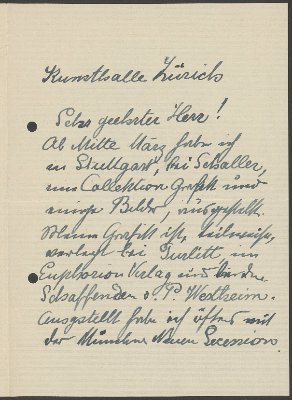 Kunsthalle Zürich
Sehr geehrter Herr!
Ab Mitte März habe ich
in Stuttgart, bei Schaller,
eine Collektion Grafik und
einige Bilder, ausgestellt.
Meine Grafik ist, teilweise,
verlegt bei Gurlitt, im
Euphorion Verlag und bei den
Schaffenden v. P. Westheim.
Ausgestellt habe ich öfters mit
der Münchner Neuen Secession